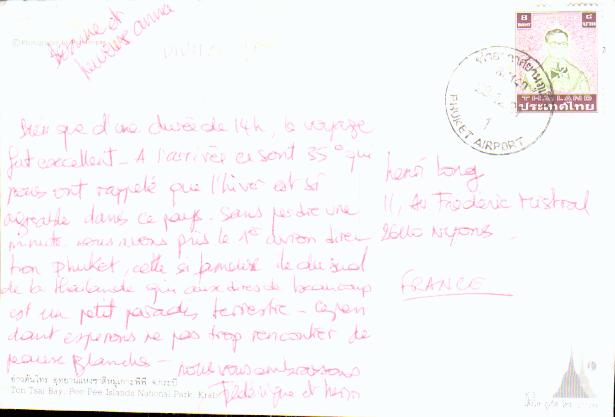 Bien que d'une durée de 14h, le voyage
fut excellent - A l'arrivée ce sont 35° qui
nous ont rappelé que l'hiver est si
agréable dans ce pays. Sans perdre une
minute nous avons pris le 1er avion direc
tion Phuket, cette si fameuse île du sud
de la Thaïlande qui aux dires de beaucoup
est un petit paradis terrestre - Cepen
dant espérons ne pas trop rencontrer de
peaux blanches -
nous vous embrassons
Frédérique et
Henri Long
11, Av Frédéric Mistral
26110 Nyons
FRANCE
8 BAHT
THAILAND
ประเทศไทย
PHUKET AIRPORT
อ่าวต้นไทร อุทยานแห่งชาติหมู่เกาะพีพี จ.กระบี่
Ton Tsai Bay, Pee Pee Islands National Park, Krabi